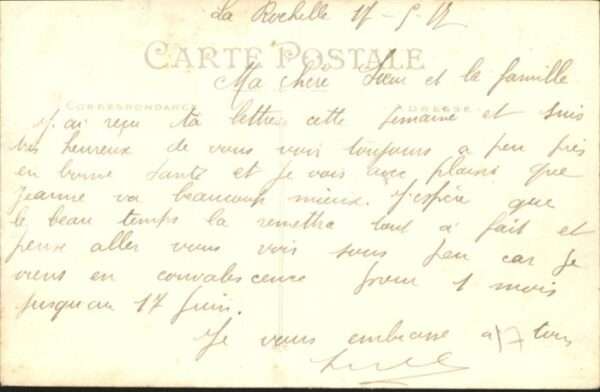 La Rochelle 17-5-17
CARTE POSTALE
Ma chère Sœur et la famille
CORRESPONDANCE
ADRESSE
J'ai reçu ta lettre cette semaine et suis
très heureux de vous voir toujours a peu près
en bonne santé et je vois avec plaisir que
Jeanne va beaucoup mieux. J'espère que
le beau temps la remettra tout à fait et
pense aller vous voir sous peu car je
viens en convalescence pour 1 mois
jusqu'au 17 juin.
Je vous embrasse a tous